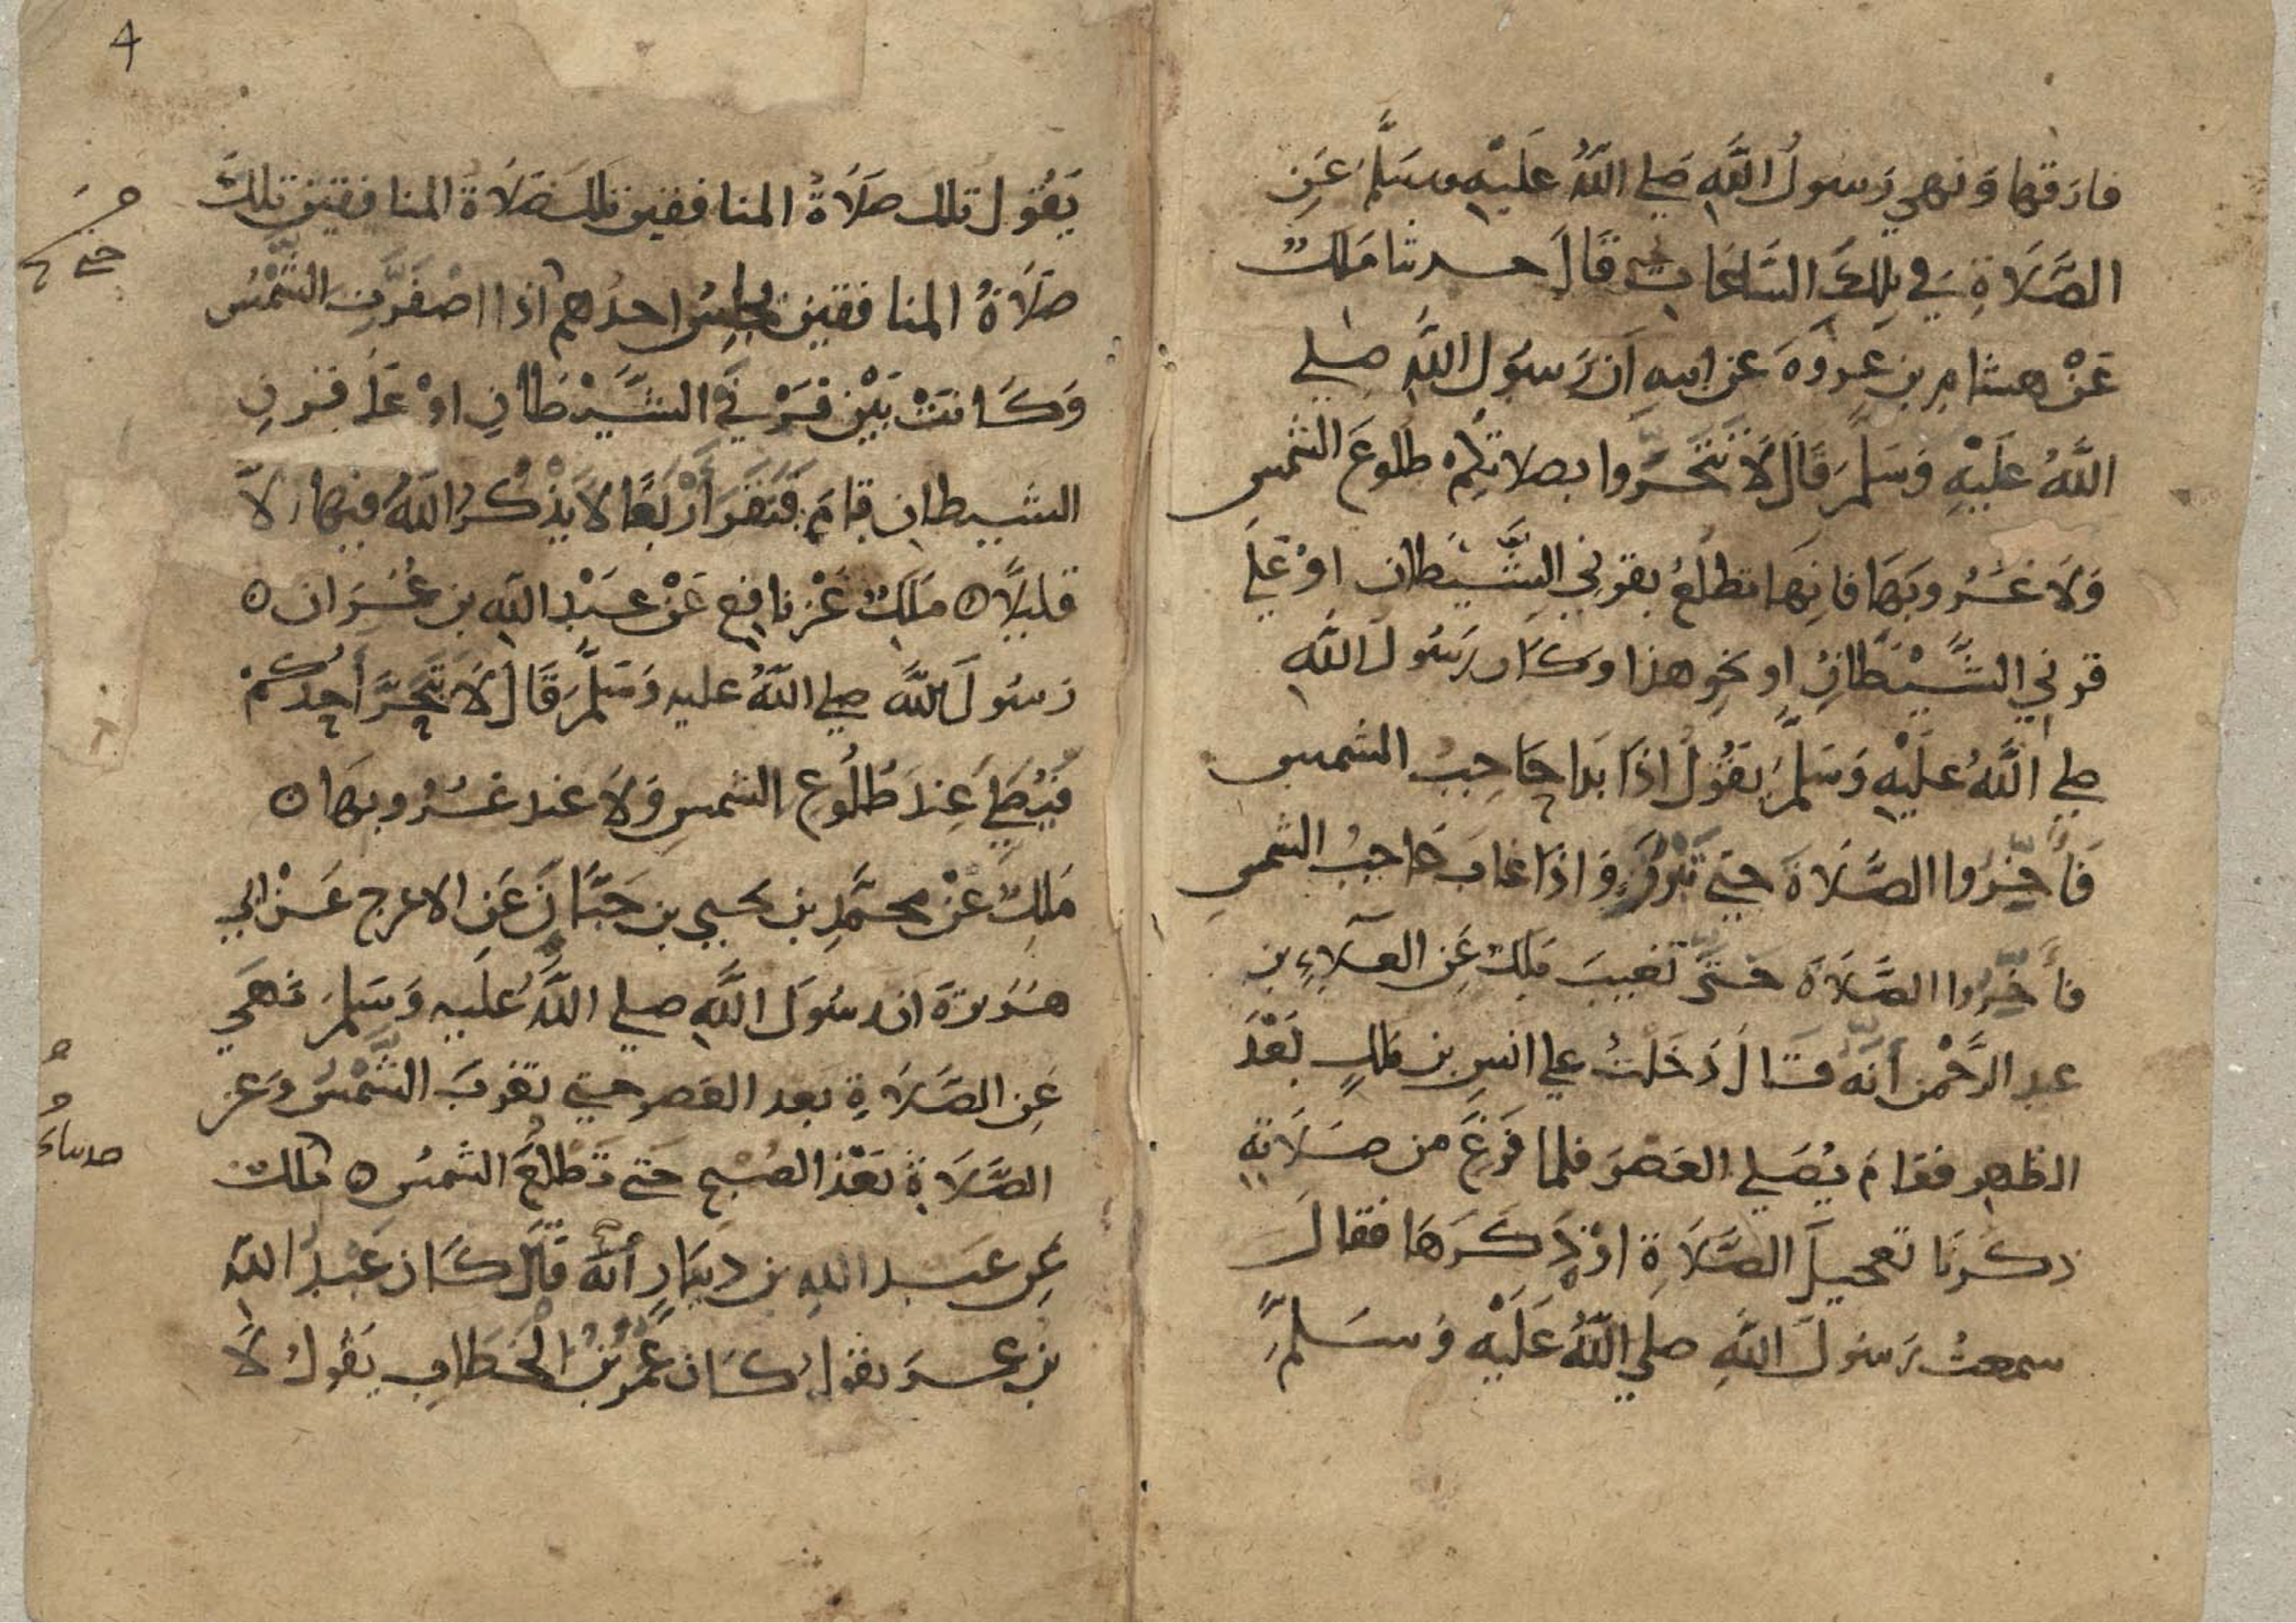 فارقها وَنهي رَسولُ اللَّهِ صَلى اللَّهُ عَلَيْهِ وسَلَّمَ عَنِ
الصَّلَاةِ فِي تِلكَ السَّاعَاتِ قَالَ حدثنا مَلكٌ
عَنْ هشام بن عروةَ عن ابيه أن رَسُول اللَّهِ صلى
اللَّهُ عَلَيْهِ وَسَلمَ قَالَ لَا تَتَحَرَّوا بصلاتكم طلُوعَ الشمس
وَلَا غُرُوبَهَا فانهَا تطلُعُ بقرني الشَّيطان اوْ عَلَى
قرني الشَّيْطَانِ او نحو هذا وكان رَسُولُ اللَّهِ
صلى اللَّهُ عَلَيْهِ وَسَلَّمَ يَقُولُ اذَا بَدا حَاجِبُ الشمس
فَأَخِّرُوا الصَّلَاةَ حتى تَبْرُزَ وَاذَا غابَ حَاجِبُ الشمسِ
فأَخِّرُوا الصَّلَاةَ حَتَّى تَغيبَ مَلك عَنِ العَلَاءِ بن
عبد الرَّحْمن أنَّهُ قَالَ دَخَلتُ على انسِ بن مَلكٍ بَعْدَ
الظهر فقامَ يُصَلي العَصرَ فلما فَرَغَ من صَلَاتهِ
ذكرنَا تعجيلَ الصَّلَاةِ اوْ ذَكَرَهَا فقالَ
سمعتُ رَسُولَ اللَّهِ صلى اللَّهُ عَلَيْهِ وَسَلَّمَ
4
يَقُول تلك صَلَاةُ المنافقين تلكَ صَلَاةُ المنافقين تلكَ
صَلَاةُ المنافقين يجلِسُ احدُهم اذا اصْفَرَّتِ الشَّمْسُ
وَكَانَتْ بَيْنَ قَرْنَي الشَّيْطَانِ اوْ عَلَى قرنِ
الشيطان قامَ فَنَقَرَ أَرْبَعًا لا يَذْكُرُ اللَّهَ فيها الَّا
قليلًا ه مَلِكٌ عَنْ نافِعٍ عَنْ عَبْدِ اللَّهِ بن عُمَرَ ان ه
رَسُولَ اللَّهِ صلى اللَّهُ عليه وَسَلَّمَ قَالَ لَا يَتَحَرَّ أَحَدُكُمْ
فَيُصَلِّي عِندَ طُلُوعِ الشمسِ وَلَا عند غُرُوبهَا ه
مَلِكٌ عَنْ مُحَمَّدِ بن يحيى بن حَبَّانَ عَنِ الاعرج عَنْ ابي
هُرَيرَةَ ان رسُولَ اللَّهِ صلى اللَّهُ عَلَيه وَسَلمَ نَهَى
عَنِ الصَّلَاةِ بعد العَصر حتى تغربَ الشَّمْسُ وَعَن
الصَّلَاةِ بَعْدَ الصُبْحِ حَتى تَطْلُعَ الشمسُ ه مَلكٌ
عَن عَبد اللهِ بن دِينَارٍ أنَّهُ قَالَ كَانَ عَبْدُ اللَّهِ
بن عمرَ يقولُ كَانَ عُمَرُ بْنُ الْخَطَّابِ يَقُولُ لَا